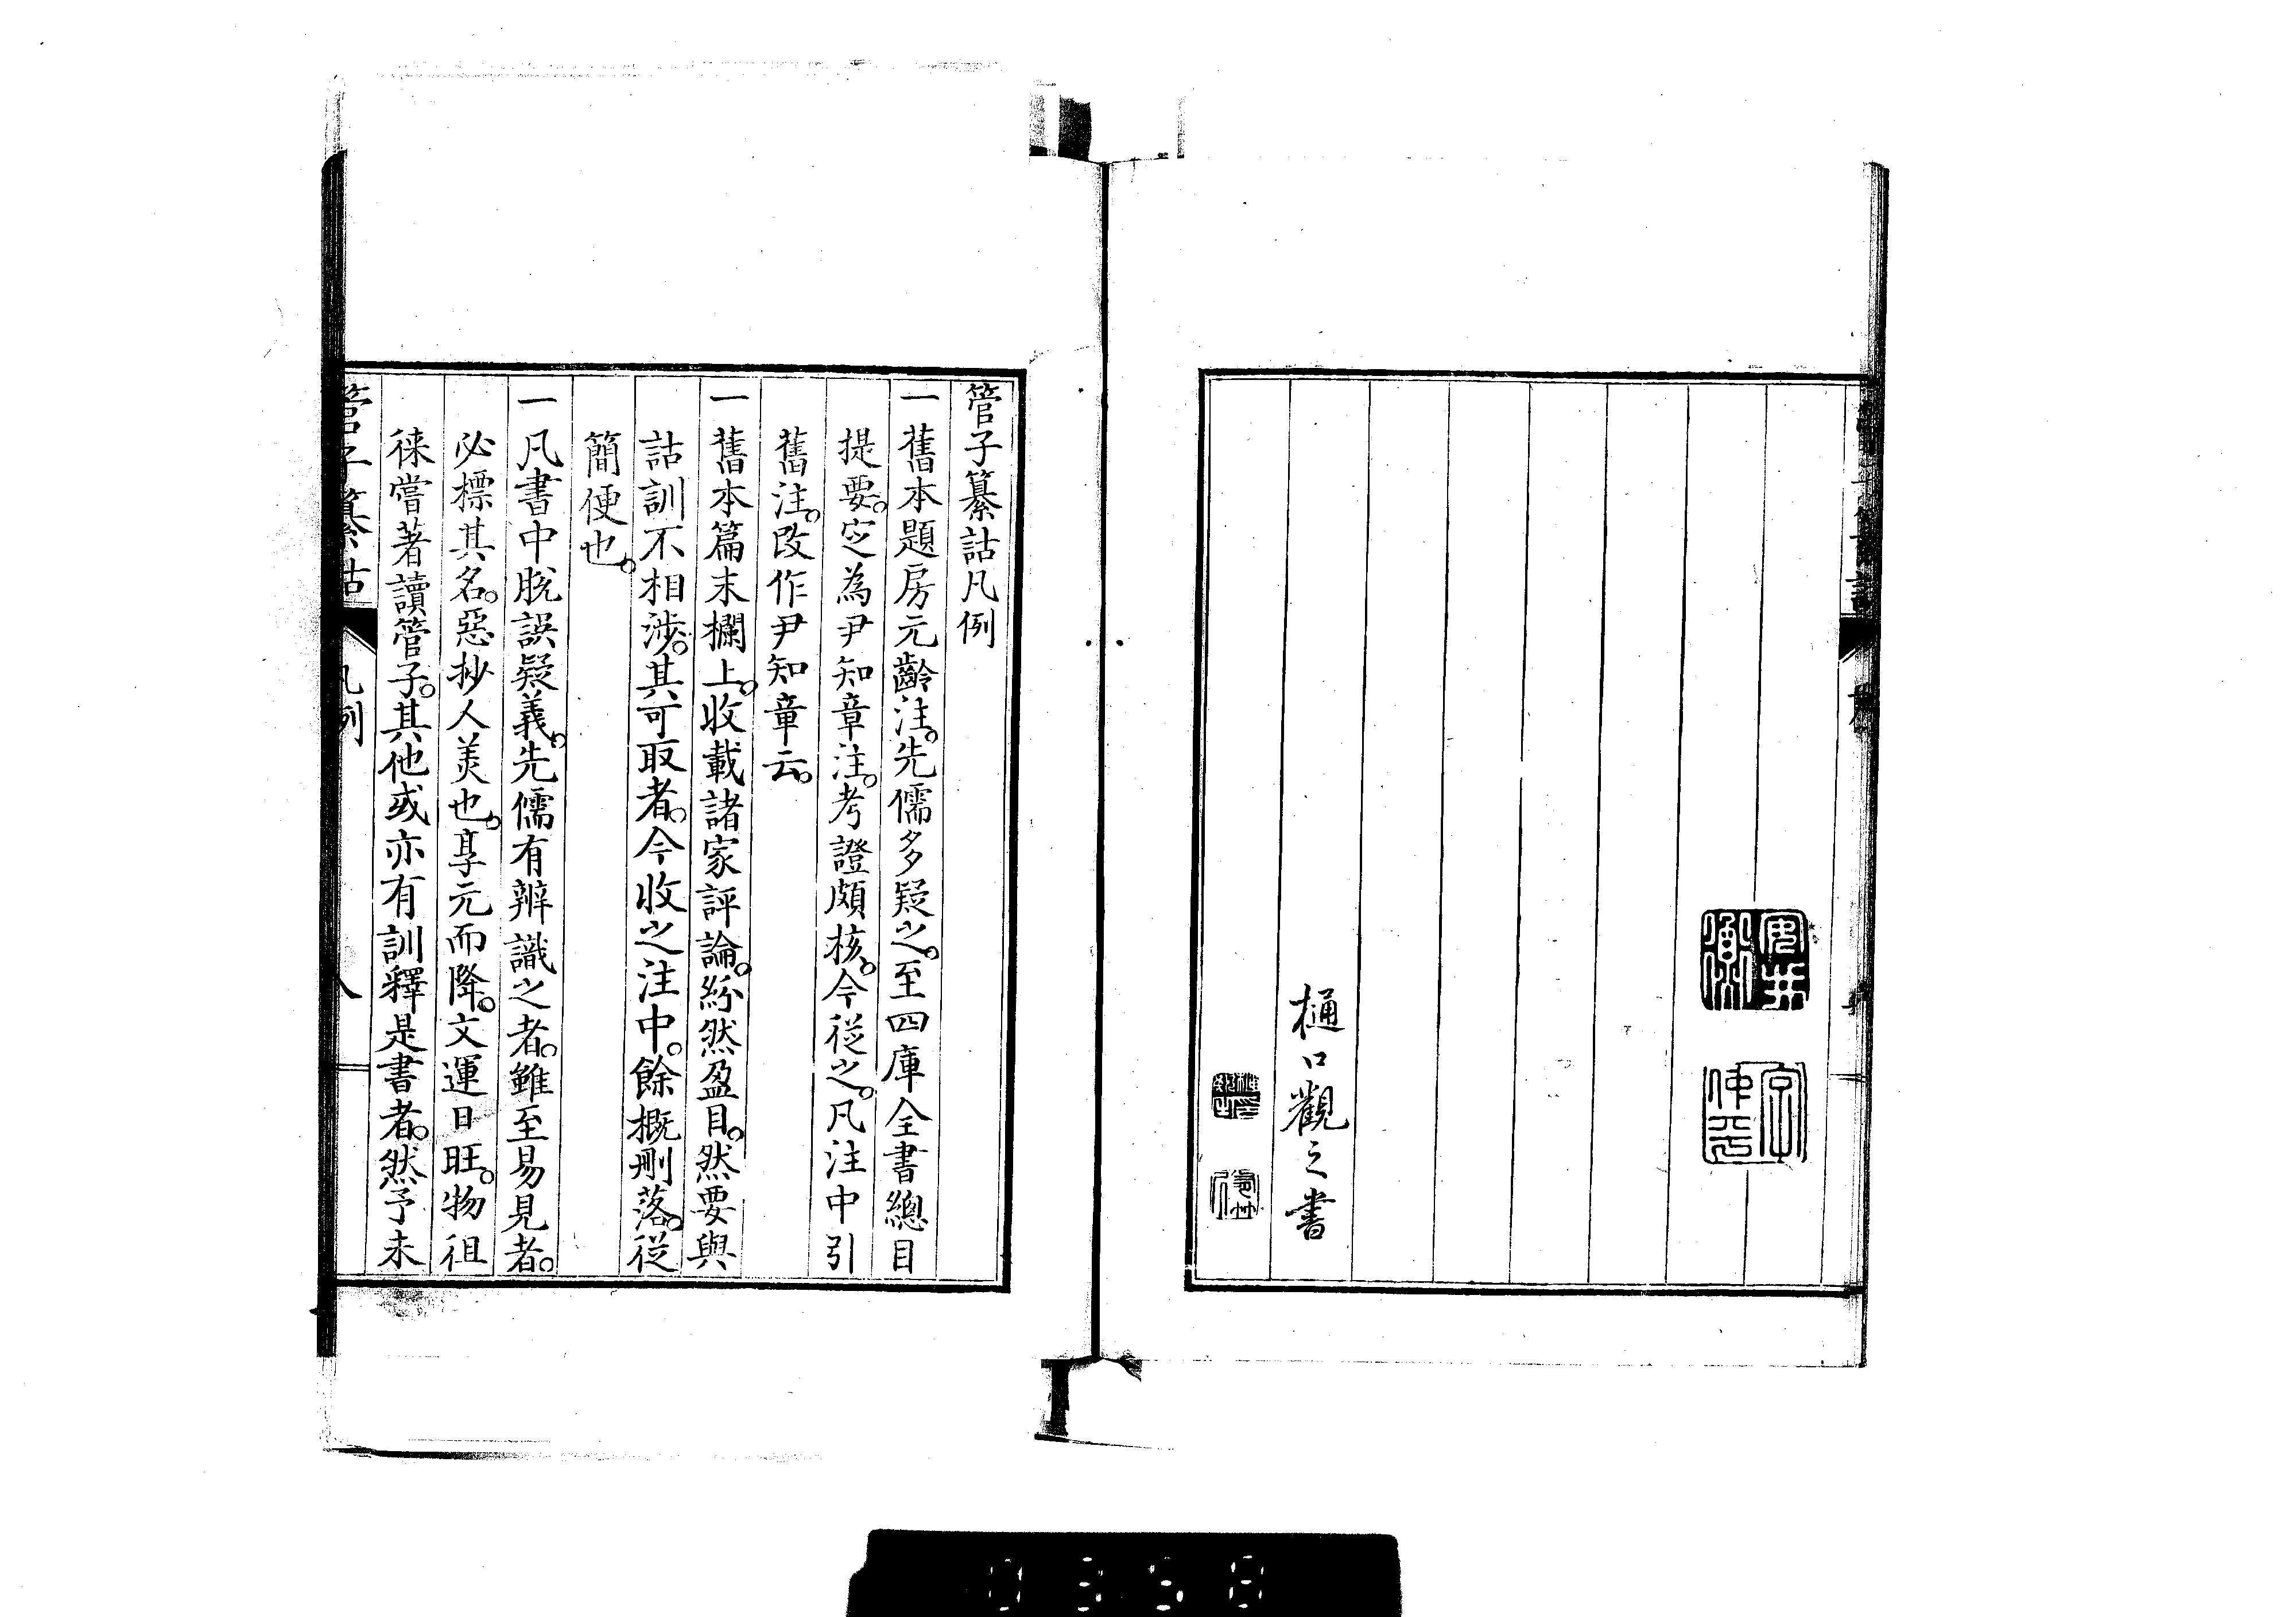 安井衡
字仲平
樋口觀之書
管子纂詁凡例
一舊本題房元齡注。先儒多疑之。至四庫全書總目
提要。定為尹知章注。考證頗核。今從之。凡注中引
舊注。改作尹知章云。
一舊本篇末欄上。收載諸家評論。紛然盈目。然要與
詁訓不相涉。其可取者。今收之注中。餘概刪落。從
簡便也。
一凡書中脫誤疑義。先儒有辨識之者。雖至易見者。
必標其名。惡抄人美也。享元而降。文運日旺。物徂
徠嘗著讀管子。其他或亦有訓釋是書者。然予未
管子纂詁
凡例
0358